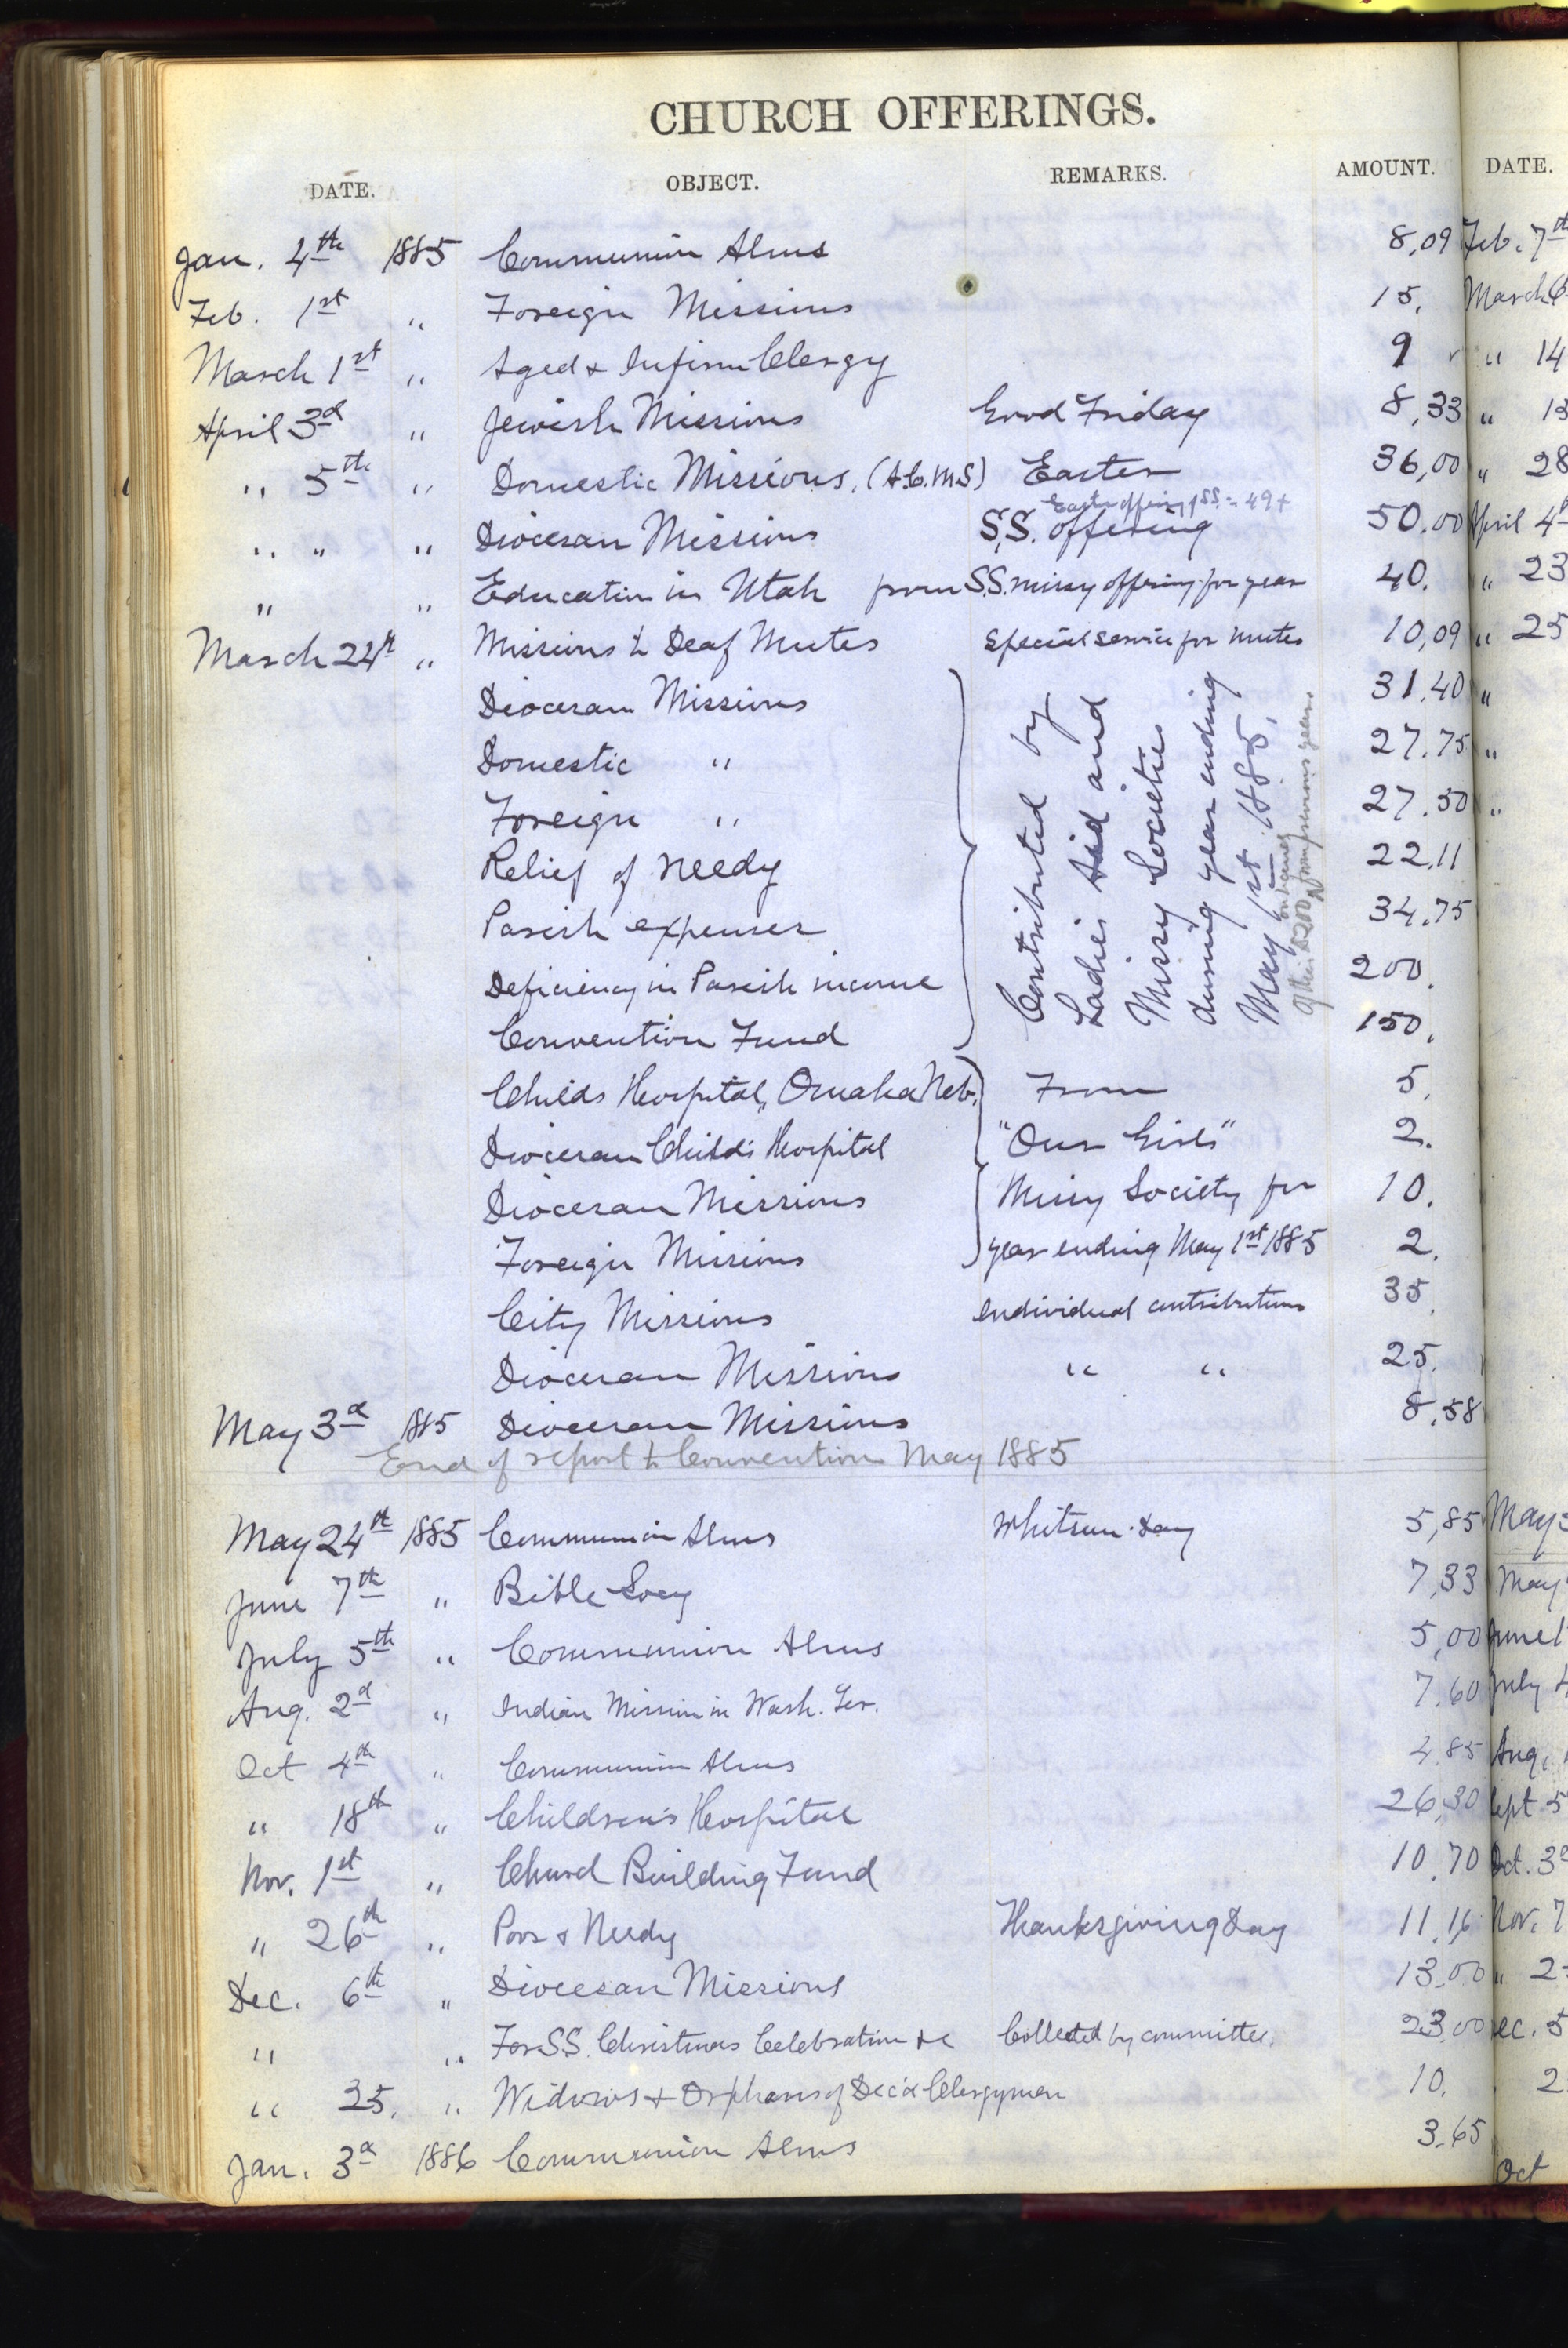 CHURCH OFFERINGS.
DATE. OBJECT. REMARKS. AMOUNT. DATE.
Jan. 4th 1885 Communion Alms 8,09 Feb. 7th
Feb. 1st " Foreign Missions 15, March 6
March 1st " Aged & Infirm Clergy 9 " 14
April 3d " Jewish Missions Good Friday 8,33 " 13
" 5th " Domestic Missions, (A.C.M.S) Easter 36,00 " 28
Easter offering of S.S. = 49+
" " " Diocesan Missions S.S. offering 50.00 April 4
" " Education in Utah from S.S. missy offering for year 40. " 23
March 24th " Missions to Deaf Mutes Special service for mutes 10,09 " 25
Diocesan Missions 31,40 "
Domestic " 27.75 "
Foreign " 27.50 "
Relief of needy 22,11
Parish expenses 34.75
Deficiency in Parish income 200.
Convention Fund 150.
Contributed by
Ladies Aid and
Missy Societies
during year ending
May 1st 1885.
of this $200 from previous year.
Childs Hospital, Omaha Neb. From 5.
Diocesan Child's Hospital "Our Girls" 2.
Diocesan Missions Missy Society for 10.
Foreign Missions year ending May 1st 1885 2.
City Missions Individual contributions 35.
Diocesan Missions " " 25.
May 3d 1885 Diocesan Missions 8.58
End of report to Convention May 1885
May 24th 1885 Communion Alms Whitsun-day 5,85 May
June 7th " Bible Socy 7,33 May
July 5th " Communion Alms 5,00 June 1
Aug. 2d " Indian Mission in Wash. Ter. 7.60 July 4
Oct 4th " Communion Alms 4,85 Aug. 1
" 18th " Children's Hospital 26,30 Sept 5
Nov. 1st " Church Building Fund 10,70 Oct. 3d
" 26th " Poor & Needy Thanksgiving Day 11,16 Nov. 7
Dec. 6th " Diocesan Missions 13,00 " 2
" " For S.S. Christmas Celebration &c Collected by committee. 23,00 Dec. 5
" 25. " Widows & Orphans of Dec'd Clergymen 10. 2
Jan. 3d 1886 Communion Alms 3.65
Oct